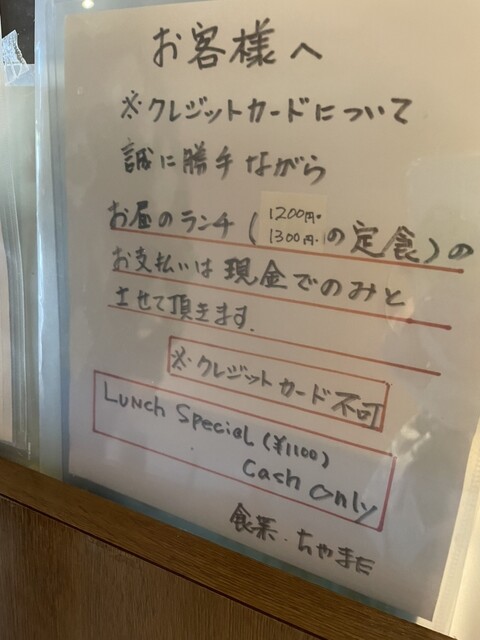 お客様へ
※クレジットカードについて
誠に勝手ながら
お昼のランチ(1200円・1300円・の定食)の
お支払いは現金でのみと
させて頂きます.
※クレジットカード不可
Lunch Special (¥1100)
Cash only
食菜・ちやまた